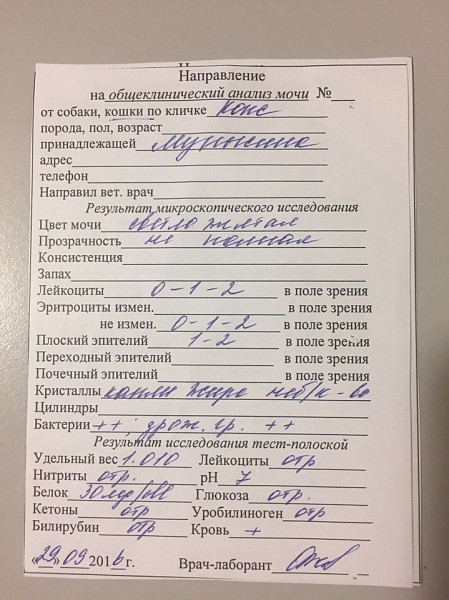 Направление
на общеклинический анализ мочи №___
от собаки, кошки по кличке Кокс
порода, пол, возраст
принадлежащей
адрес
телефон
Направил вет. врач
Результат микроскопического исследования
Цвет мочи светло желтая
Прозрачность не полная
Консистенция
Запах
Лейкоциты 0-1-2 в поле зрения
Эритроциты измен. в поле зрения
не измен. 0-1-2 в поле зрения
Плоский эпителий 1-2 в поле зрения
Переходный эпителий в поле зрения
Почечный эпителий в поле зрения
Кристаллы капли жира неб/к-во
Цилиндры
Бактерии ++ дрож. гр. ++
Результат исследования тест-полоской
Удельный вес 1.010 Лейкоциты отр
Нитриты отр. pH 7
Белок 30 мг/дл Глюкоза отр.
Кетоны отр Уробилиноген отр
Билирубин отр Кровь +
«29» 09 2016 г. Врач-лаборант